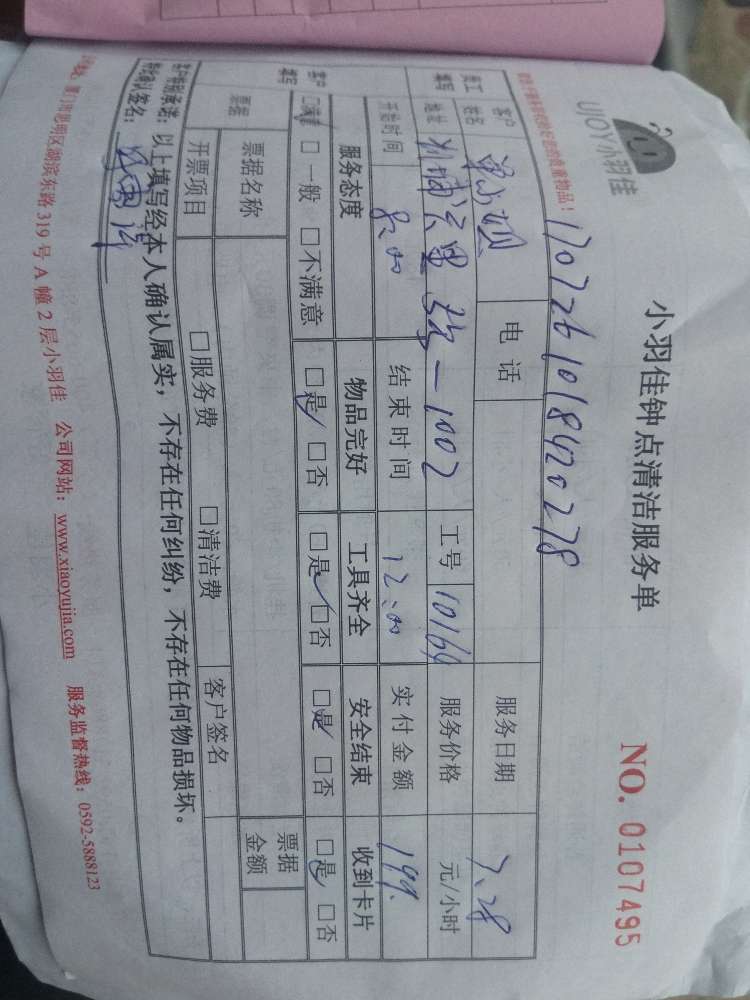 UJOY小羽佳
小羽佳钟点清洁服务单
NO. 0107495
1707261018420278
客户姓名 电话 服务日期 7.28
员工填写 地址 工号 10164 服务价格 元/小时
开始时间 8:00 结束时间 12:00 实付金额 199.
客户填写 服务态度 物品完好 工具齐全 安全结束 收到卡片
□满意 □一般 □不满意 □是 □否 □是 □否 □是 □否 □是 □否
票据 票据名称 票据金额
开票项目 □服务费 □清洁费 客户签名
客户特别承诺:以上填写经本人确认属实,不存在任何纠纷,不存在任何物品损坏。
客户确认签名:
厦门市思明区湖滨东路319号A幢2层小羽佳 公司网站:www.xiaoyujia.com 服务监督热线:0592-5888123